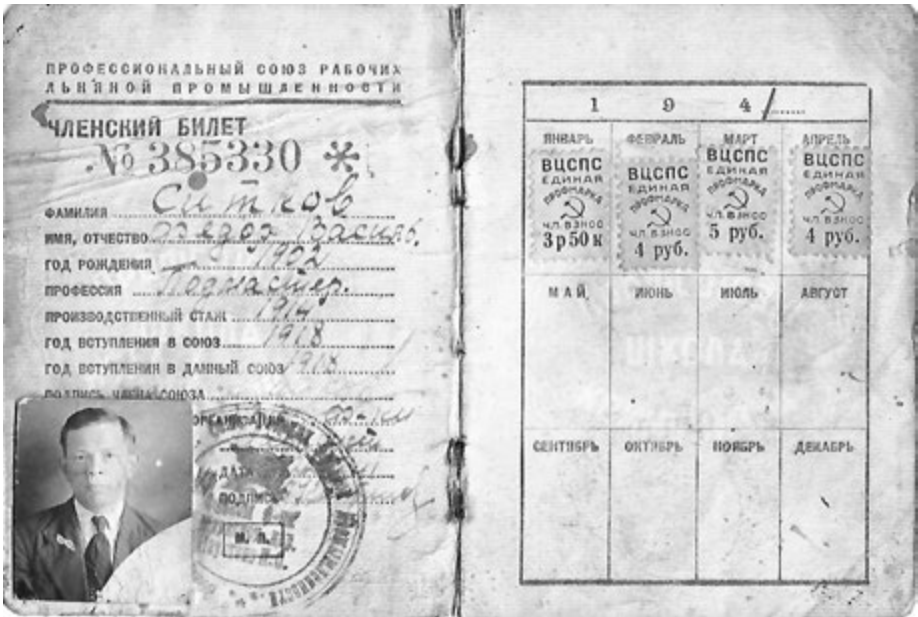 ПРОФЕССИОНАЛЬНЫЙ СОЮЗ РАБОЧИХ
ЛЬНЯНОЙ ПРОМЫШЛЕННОСТИ
ЧЛЕНСКИЙ БИЛЕТ
№ 385330 *
ФАМИЛИЯ Ситков
ИМЯ, ОТЧЕСТВО
ГОД РОЖДЕНИЯ 1902
ПРОФЕССИЯ Подмастер.
ПРОИЗВОДСТВЕННЫЙ СТАЖ 1914
ГОД ВСТУПЛЕНИЯ В СОЮЗ 1918
ГОД ВСТУПЛЕНИЯ В ДАННЫЙ СОЮЗ 1918
ПОДПИСЬ ЧЛЕНА СОЮЗА
ДАТА
ПОДПИСЬ
М. П.
194/
ЯНВАРЬ ФЕВРАЛЬ МАРТ АПРЕЛЬ
ВЦСПС
ЕДИНАЯ
ПРОФМАРКА
ЧЛ. ВЗНОС
3 р 50 к
ВЦСПС
ЕДИНАЯ
ПРОФМАРКА
ЧЛ. ВЗНОС
4 руб.
ВЦСПС
ЕДИНАЯ
ПРОФМАРКА
ЧЛ. ВЗНОС
5 руб.
ВЦСПС
ЕДИНАЯ
ПРОФМАРКА
ЧЛ. ВЗНОС
4 руб.
МАЙ ИЮНЬ ИЮЛЬ АВГУСТ
СЕНТЯБРЬ ОКТЯБРЬ НОЯБРЬ ДЕКАБРЬ